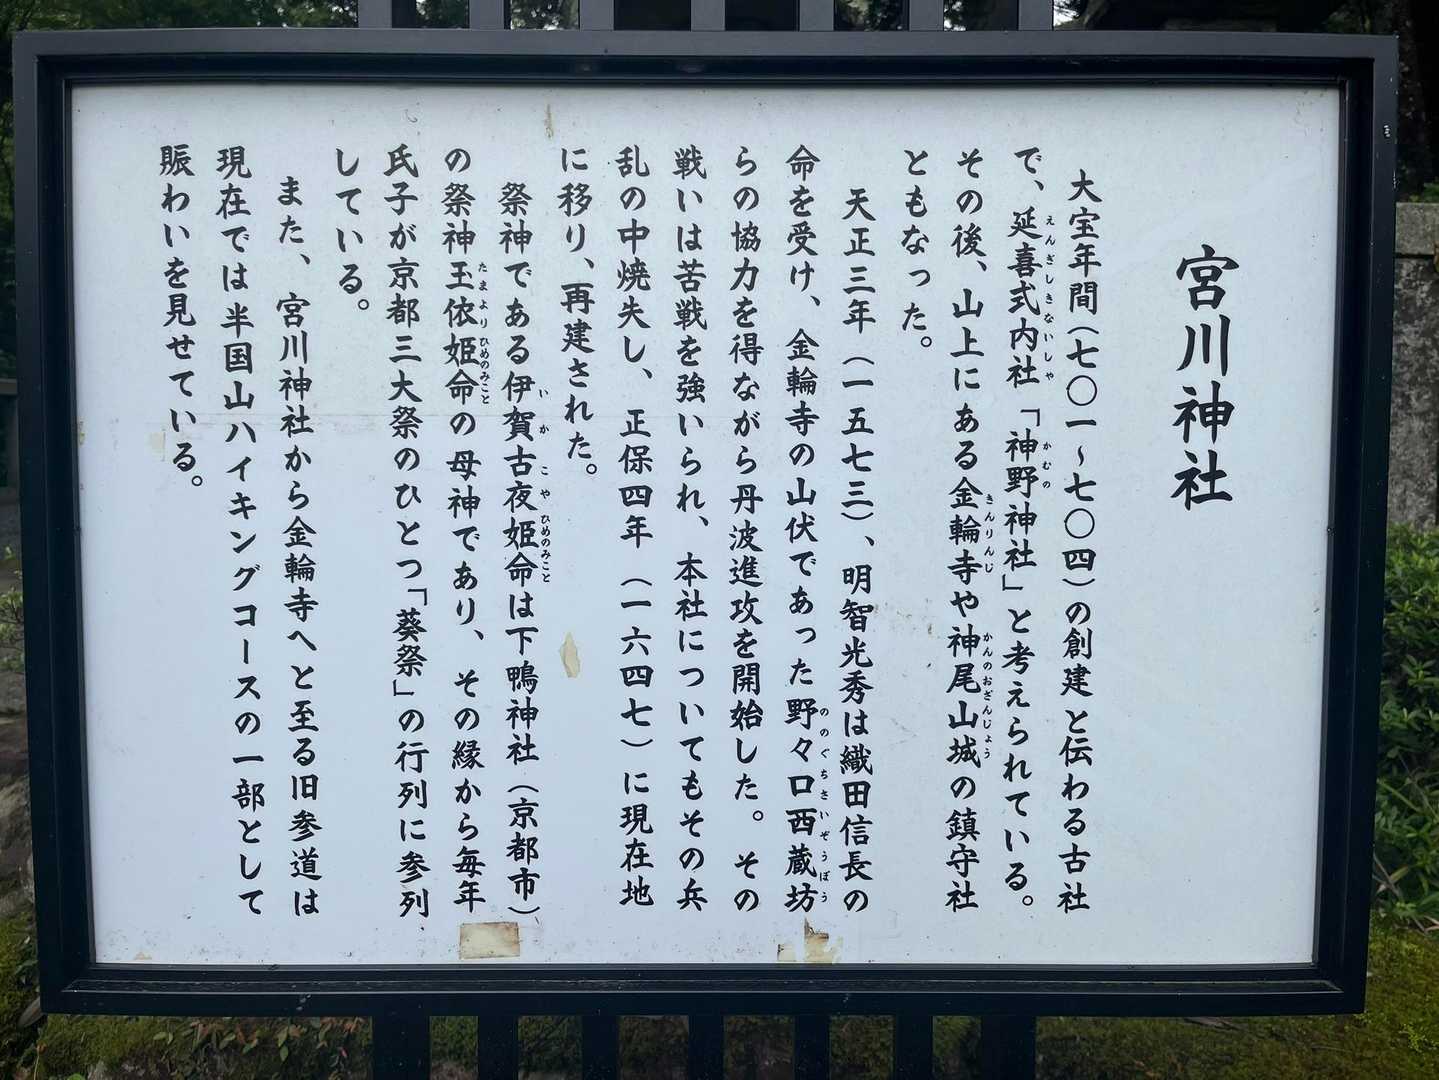 宮川神社
大宝年間(七〇一～七〇四)の創建と伝わる古社
で、延喜式内社「神野神社」と考えられている。
えんぎしきないしゃ
かむの
その後、山上にある金輪寺や神尾山城の鎮守社
きんりんじ
かんのおざんじょう
ともなった。
天正三年(一五七三)、明智光秀は織田信長の
命を受け、金輪寺の山伏であった野々口西蔵坊
ののぐちさいぞうぼう
らの協力を得ながら丹波進攻を開始した。その
戦いは苦戦を強いられ、本社についてもその兵
乱の中焼失し、正保四年(一六四七)に現在地
に移り、再建された。
祭神である伊賀古夜姫命は下鴨神社(京都市)
いかこやひめのみこと
の祭神玉依姫命の母神であり、その縁から毎年
たまよりひめのみこと
氏子が京都三大祭のひとつ「葵祭」の行列に参列
している。
また、宮川神社から金輪寺へと至る旧参道は
現在では半国山ハイキングコースの一部として
賑わいを見せている。